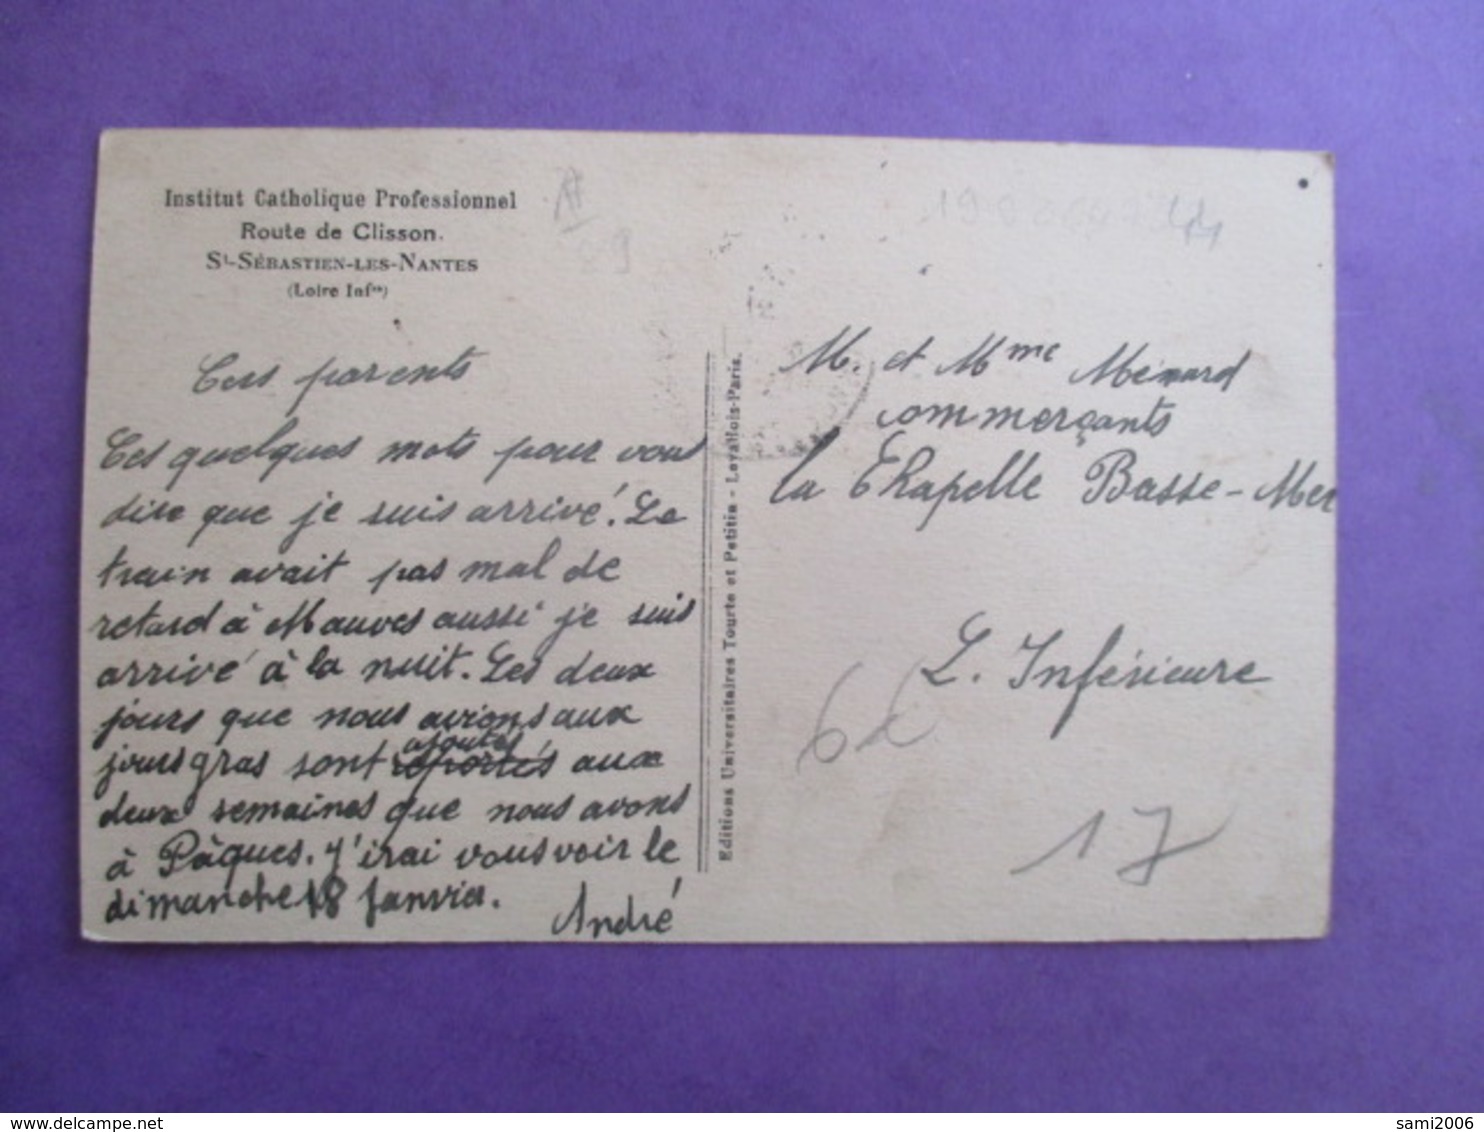 Institut Catholique Professionnel
Route de Clisson.
St-SÉBASTIEN-LES-NANTES
(Loire Infre)
Cers parents
Ces quelques mots pour vous
dire que je suis arrivé. Le
train avait pas mal de
retard à Mauves aussi je suis
arrivé à la nuit. Les deux
jours que nous avions aux
jours gras sont reportés ajoutés aux
deux semaines que nous avons
à Pâques. J'irai vous voir le
dimanche 18 Janvier.
André
Editions Universitaires Tourte et Petitin - Levallois-Paris.
M. et Mme Ménard
commerçants
la Chapelle Basse-Mer
L. Inférieure
17
44
sami2006
delcampe.net